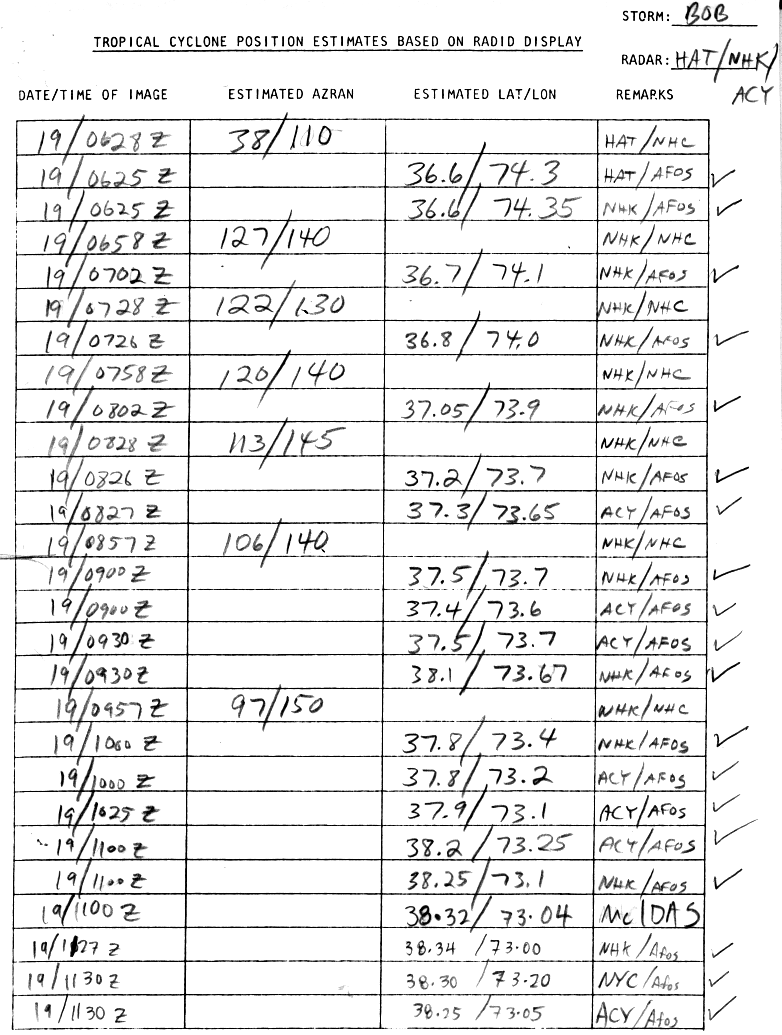 STORM: BOB
TROPICAL CYCLONE POSITION ESTIMATES BASED ON RADID DISPLAY
RADAR: HAT/NHK/
ACY
DATE/TIME OF IMAGE ESTIMATED AZRAN ESTIMATED LAT/LON REMARKS
19/0628 Z 38/110 HAT/NHC
19/0625 Z 36.6/74.3 HAT/AFOS ✓
19/0625 Z 36.6/74.35 NHK/AFOS ✓
19/0658 Z 127/140 NHK/NHC
19/0702 Z 36.7/74.1 NHK/AFOS ✓
19/0728 Z 122/130 NHK/NHC
19/0726 Z 36.8/74.0 NHK/AFOS ✓
19/0758 Z 120/140 NHK/NHC
19/0802 Z 37.05/73.9 NHK/AFOS ✓
19/0828 Z 113/145 NHK/NHC
19/0826 Z 37.2/73.7 NHK/AFOS ✓
19/0827 Z 37.3/73.65 ACY/AFOS ✓
19/0857 Z 106/140 NHK/NHC
19/0900 Z 37.5/73.7 NHK/AFOS ✓
19/0900 Z 37.4/73.6 ACY/AFOS ✓
19/0930 Z 37.5/73.7 ACY/AFOS ✓
19/0930 Z 38.1/73.67 NHK/AFOS ✓
19/0957 Z 97/150 NHK/NHC
19/1000 Z 37.8/73.4 NHK/AFOS ✓
19/1000 Z 37.8/73.2 ACY/AFOS ✓
19/1025 Z 37.9/73.1 ACY/AFOS ✓
19/1100 Z 38.2/73.25 ACY/AFOS ✓
19/1100 Z 38.25/73.1 NHK/AFOS ✓
19/1100 Z 38.32/73.04 McIDAS
19/1127 Z 38.34/73.00 NHK/Afos ✓
19/1130 Z 38.30/73.20 NYC/Afos ✓
19/1130 Z 38.25/73.05 ACY/Afos ✓